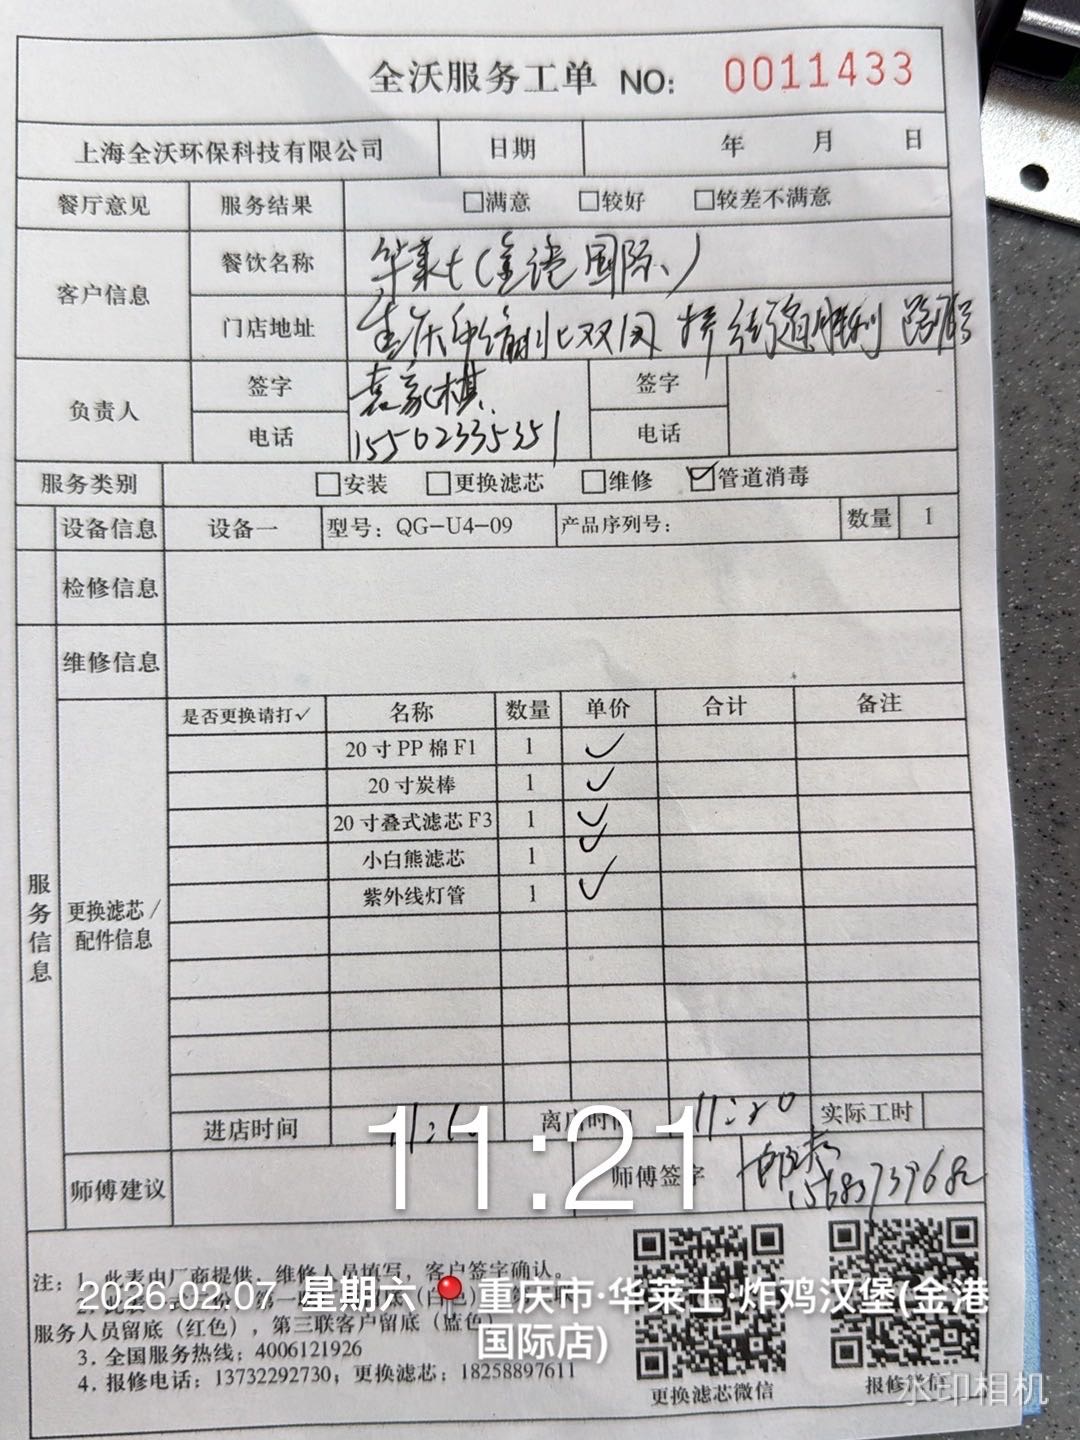 全沃服务工单 NO: 0011433
上海全沃环保科技有限公司 日期 年 月 日
餐厅意见 服务结果 □满意 □较好 □较差不满意
客户信息 餐饮名称 华莱士(金港国际)
门店地址
负责人 签字 袁家棋 签字
电话 15502335351 电话
服务类别 □安装 □更换滤芯 □维修 ☑管道消毒
设备信息 设备一 型号: QG-U4-09 产品序列号: 数量 1
检修信息
维修信息
服务信息
更换滤芯/
配件信息
是否更换请打✓ 名称 数量 单价 合计 备注
20寸PP棉F1 1 ✓
20寸炭棒 1 ✓
20寸叠式滤芯F3 1 ✓
小白熊滤芯 1 ✓
紫外线灯管 1 ✓
进店时间 离店时间 11:20 实际工时
11:21
师傅建议 师傅签字
注: 1. 此表由厂商提供, 维修人员填写, 客户签字确认。
服务人员留底(红色), 第三联客户留底(蓝色)
3. 全国服务热线: 4006121926
4. 报修电话: 13732292730; 更换滤芯: 18258897611
更换滤芯微信 报修微信
2026.02.07 星期六 重庆市·华莱士·炸鸡汉堡(金港
国际店)
水印相机